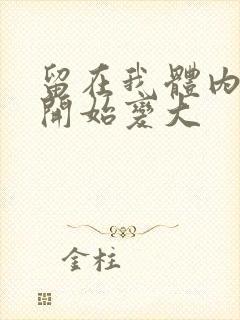 留在我體內
開始變大
金柱